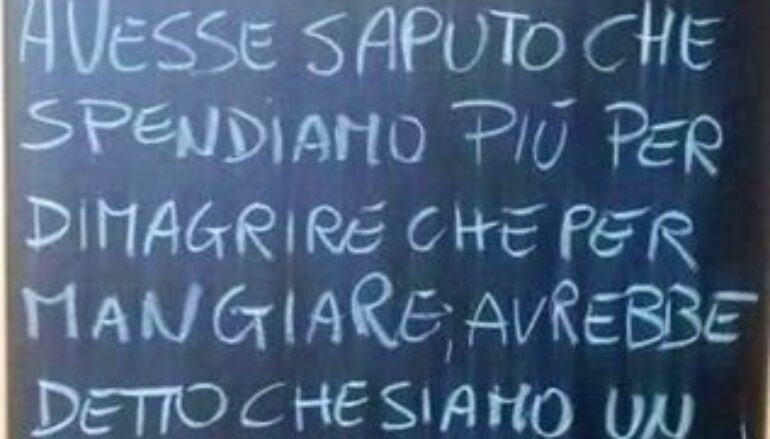 AVESSE SAPUTO CHE
SPENDIAMO PIÙ PER
DIMAGRIRE CHE PER
MANGIARE, AVREBBE
DETTO CHE SIAMO UN